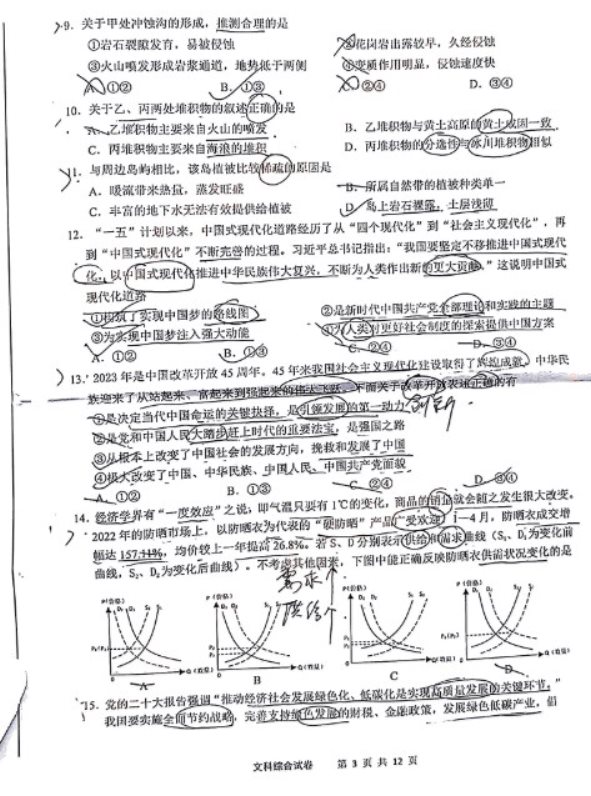 9. 关于甲处冲蚀沟的形成，推测合理的是
①岩石裂隙发育，易被侵蚀
②花岗岩出露较早，久经侵蚀
③火山喷发形成岩浆通道，地势低于两侧
④变质作用明显，侵蚀速度快
A. ①② B. ①③ C. ②④ D. ③④
10. 关于乙、丙两处堆积物的叙述正确的是
A. 乙堆积物主要来自火山的喷发
B. 乙堆积物与黄土高原的黄土成因一致
C. 丙堆积物主要来自海浪的堆积
D. 丙堆积物的分选性与冰川堆积物相似
11. 与周边岛屿相比，该岛植被比较稀疏的原因是
A. 暖流带来热量，蒸发旺盛
B. 所属自然带的植被种类单一
C. 丰富的地下水无法有效提供给植被
D. 岛上岩石裸露，土层浅薄
12. “一五”计划以来，中国式现代化道路经历了从“四个现代化”到“社会主义现代化”，再
到“中国式现代化”不断完善的过程。习近平总书记指出：“我国要坚定不移推进中国式现代
化，以中国式现代化推进中华民族伟大复兴，不断为人类作出新的更大贡献。”这说明中国式
现代化道路
①构筑了实现中国梦的路线图
②是新时代中国共产党全部理论和实践的主题
③为实现中国梦注入强大动能
④为人类对更好社会制度的探索提供中国方案
A. ①② B. ①③ C. ②④ D. ③④
13. 2023年是中国改革开放45周年。45年来我国社会主义现代化建设取得了辉煌成就，中华民
族迎来了从站起来、富起来到强起来的伟大飞跃。下面关于改革开放表述正确的有
①是决定当代中国命运的关键抉择，是引领发展的第一动力 创新
②是党和中国人民大踏步赶上时代的重要法宝，是强国之路
③从根本上改变了中国社会的发展方向，挽救和发展了中国
④极大改变了中国、中华民族、中国人民、中国共产党面貌
A. ①② B. ①③ C. ②④ D. ③④
14. 经济学界有“一度效应”之说，即气温只要有1℃的变化，商品的销量就会随之发生很大改变。
2022年的防晒市场上，以防晒衣为代表的“硬防晒”产品广受欢迎，1—4月，防晒衣成交增
幅达 ，均价较上一年提高26.8%。若S、D分别表示供给和需求曲线（S₁、D₁为变化前
曲线，S₂、D₂为变化后曲线）。不考虑其他因素，下图中能正确反映防晒衣供需状况变化的是
需求↑
供给↑
P(价格) P(价格) P(价格) P(价格)
Q(数量) Q(数量) Q(数量) Q(数量)
A B C D
15. 党的二十大报告强调“推动经济社会发展绿色化、低碳化是实现高质量发展的关键环节。”
我国要实施全面节约战略，完善支持绿色发展的财税、金融政策，发展绿色低碳产业，倡
文科综合试卷 第 3 页 共 12 页